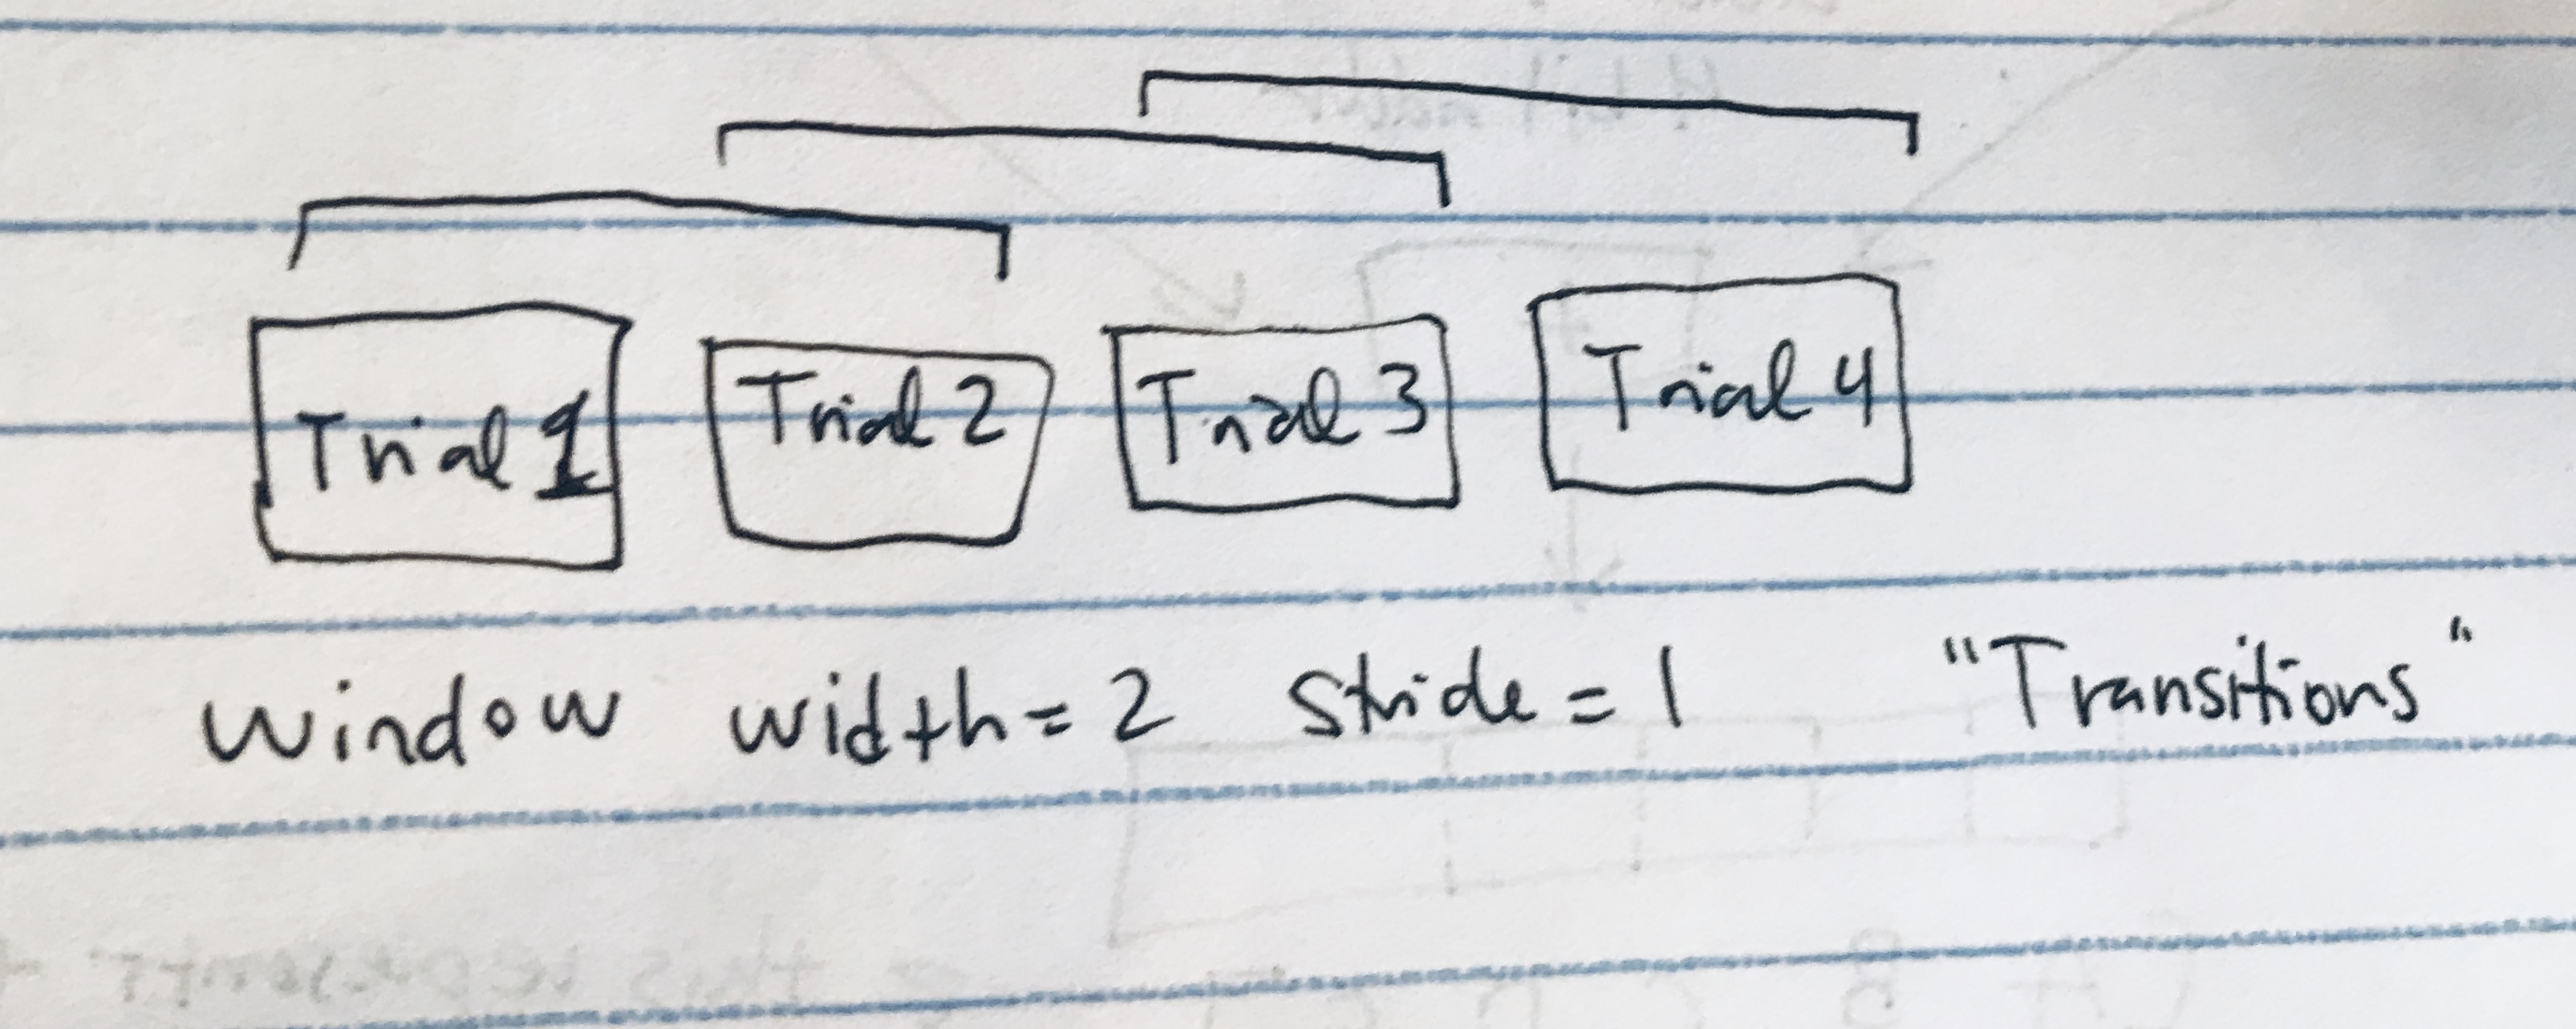 Trial 1 Trial 2 Trial 3 Trial 4
Window width = 2 Stride = 1 "Transitions"